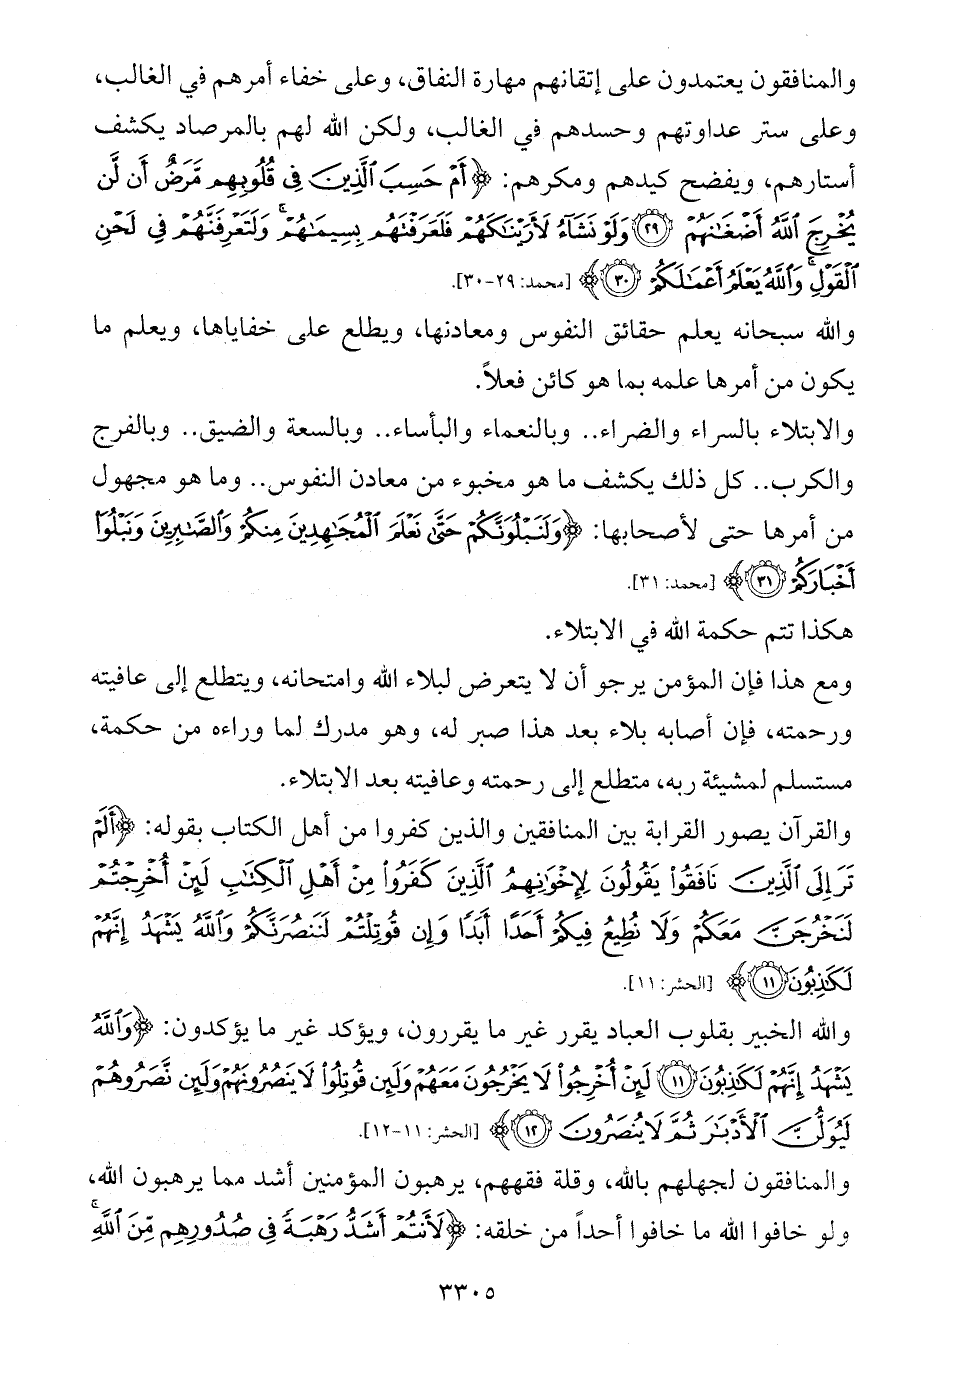 والمنافقون يعتمدون على إتقانهم مهارة النفاق، وعلى خفاء أمرهم في الغالب،
وعلى ستر عداوتهم وحسدهم في الغالب، ولكن الله لهم بالمرصاد يكشف
أستارهم، ويفضح كيدهم ومكرهم: ﴿أَمْ حَسِبَ ٱلَّذِينَ فِى قُلُوبِهِم مَّرَضٌ أَن لَّن
يُخْرِجَ ٱللَّهُ أَضْغَـٰنَهُمْ ۝٢٩ وَلَوْ نَشَآءُ لَأَرَيْنَـٰكَهُمْ فَلَعَرَفْتَهُم بِسِيمَـٰهُمْ ۚ وَلَتَعْرِفَنَّهُمْ فِى لَحْنِ
ٱلْقَوْلِ ۚ وَٱللَّهُ يَعْلَمُ أَعْمَـٰلَكُمْ ۝٣٠﴾ [محمد: ٢٩-٣٠].
والله سبحانه يعلم حقائق النفوس ومعادنها، ويطلع على خفاياها، ويعلم ما
يكون من أمرها علمه بما هو كائن فعلاً.
والابتلاء بالسراء والضراء.. وبالنعماء والبأساء.. وبالسعة والضيق.. وبالفرج
والكرب.. كل ذلك يكشف ما هو مخبوء من معادن النفوس.. وما هو مجهول
من أمرها حتى لأصحابها: ﴿وَلَنَبْلُوَنَّكُمْ حَتَّىٰ نَعْلَمَ ٱلْمُجَـٰهِدِينَ مِنكُمْ وَٱلصَّـٰبِرِينَ وَنَبْلُوَا۟
أَخْبَارَكُمْ ۝٣١﴾ [محمد: ٣١].
هكذا تتم حكمة الله في الابتلاء.
ومع هذا فإن المؤمن يرجو أن لا يتعرض لبلاء الله وامتحانه، ويتطلع إلى عافيته
ورحمته، فإن أصابه بلاء بعد هذا صبر له، وهو مدرك لما وراءه من حكمة،
مستسلم لمشيئة ربه، متطلع إلى رحمته وعافيته بعد الابتلاء.
والقرآن يصور القرابة بين المنافقين والذين كفروا من أهل الكتاب بقوله: ﴿أَلَمْ
تَرَ إِلَى ٱلَّذِينَ نَافَقُوا۟ يَقُولُونَ لِإِخْوَٰنِهِمُ ٱلَّذِينَ كَفَرُوا۟ مِنْ أَهْلِ ٱلْكِتَـٰبِ لَئِنْ أُخْرِجْتُمْ
لَنَخْرُجَنَّ مَعَكُمْ وَلَا نُطِيعُ فِيكُمْ أَحَدًا أَبَدًا وَإِن قُوتِلْتُمْ لَنَنصُرَنَّكُمْ وَٱللَّهُ يَشْهَدُ إِنَّهُمْ
لَكَـٰذِبُونَ ۝١١﴾ [الحشر: ١١].
والله الخبير بقلوب العباد يقرر غير ما يقررون، ويؤكد غير ما يؤكدون: ﴿وَٱللَّهُ
يَشْهَدُ إِنَّهُمْ لَكَـٰذِبُونَ ۝١١ لَئِنْ أُخْرِجُوا۟ لَا يَخْرُجُونَ مَعَهُمْ وَلَئِن قُوتِلُوا۟ لَا يَنصُرُونَهُمْ وَلَئِن نَّصَرُوهُمْ
لَيُوَلُّنَّ ٱلْأَدْبَـٰرَ ثُمَّ لَا يُنصَرُونَ ۝١٢﴾ [الحشر: ١١-١٢].
والمنافقون لجهلهم بالله، وقلة فقههم، يرهبون المؤمنين أشد مما يرهبون الله،
ولو خافوا الله ما خافوا أحداً من خلقه: ﴿لَأَنتُمْ أَشَدُّ رَهْبَةً فِى صُدُورِهِم مِّنَ ٱللَّهِ ۚ
٣٣٠٥